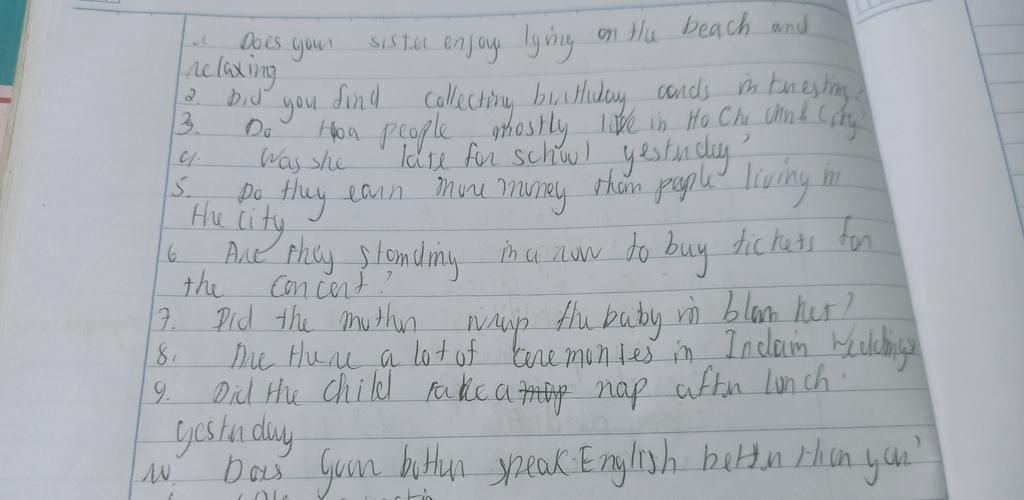 1. Does your sister enjoy lying on the beach and
relaxing
2. Did you find collecting birthday cards interesting?
3. Do Hoa people mostly live in Ho Chi Minh City?
4. Was she late for school yesterday?
5. Do they earn more money than people living in
the city
6 Are they standing in a row to buy tickets for
the concert?
7. Did the mother wrap the baby in blanket?
8. Are there a lot of ceremonies in Indain Weddings
9. Did the child take a nap after lunch.
yesterday
10. Does your bother speak English better than you?